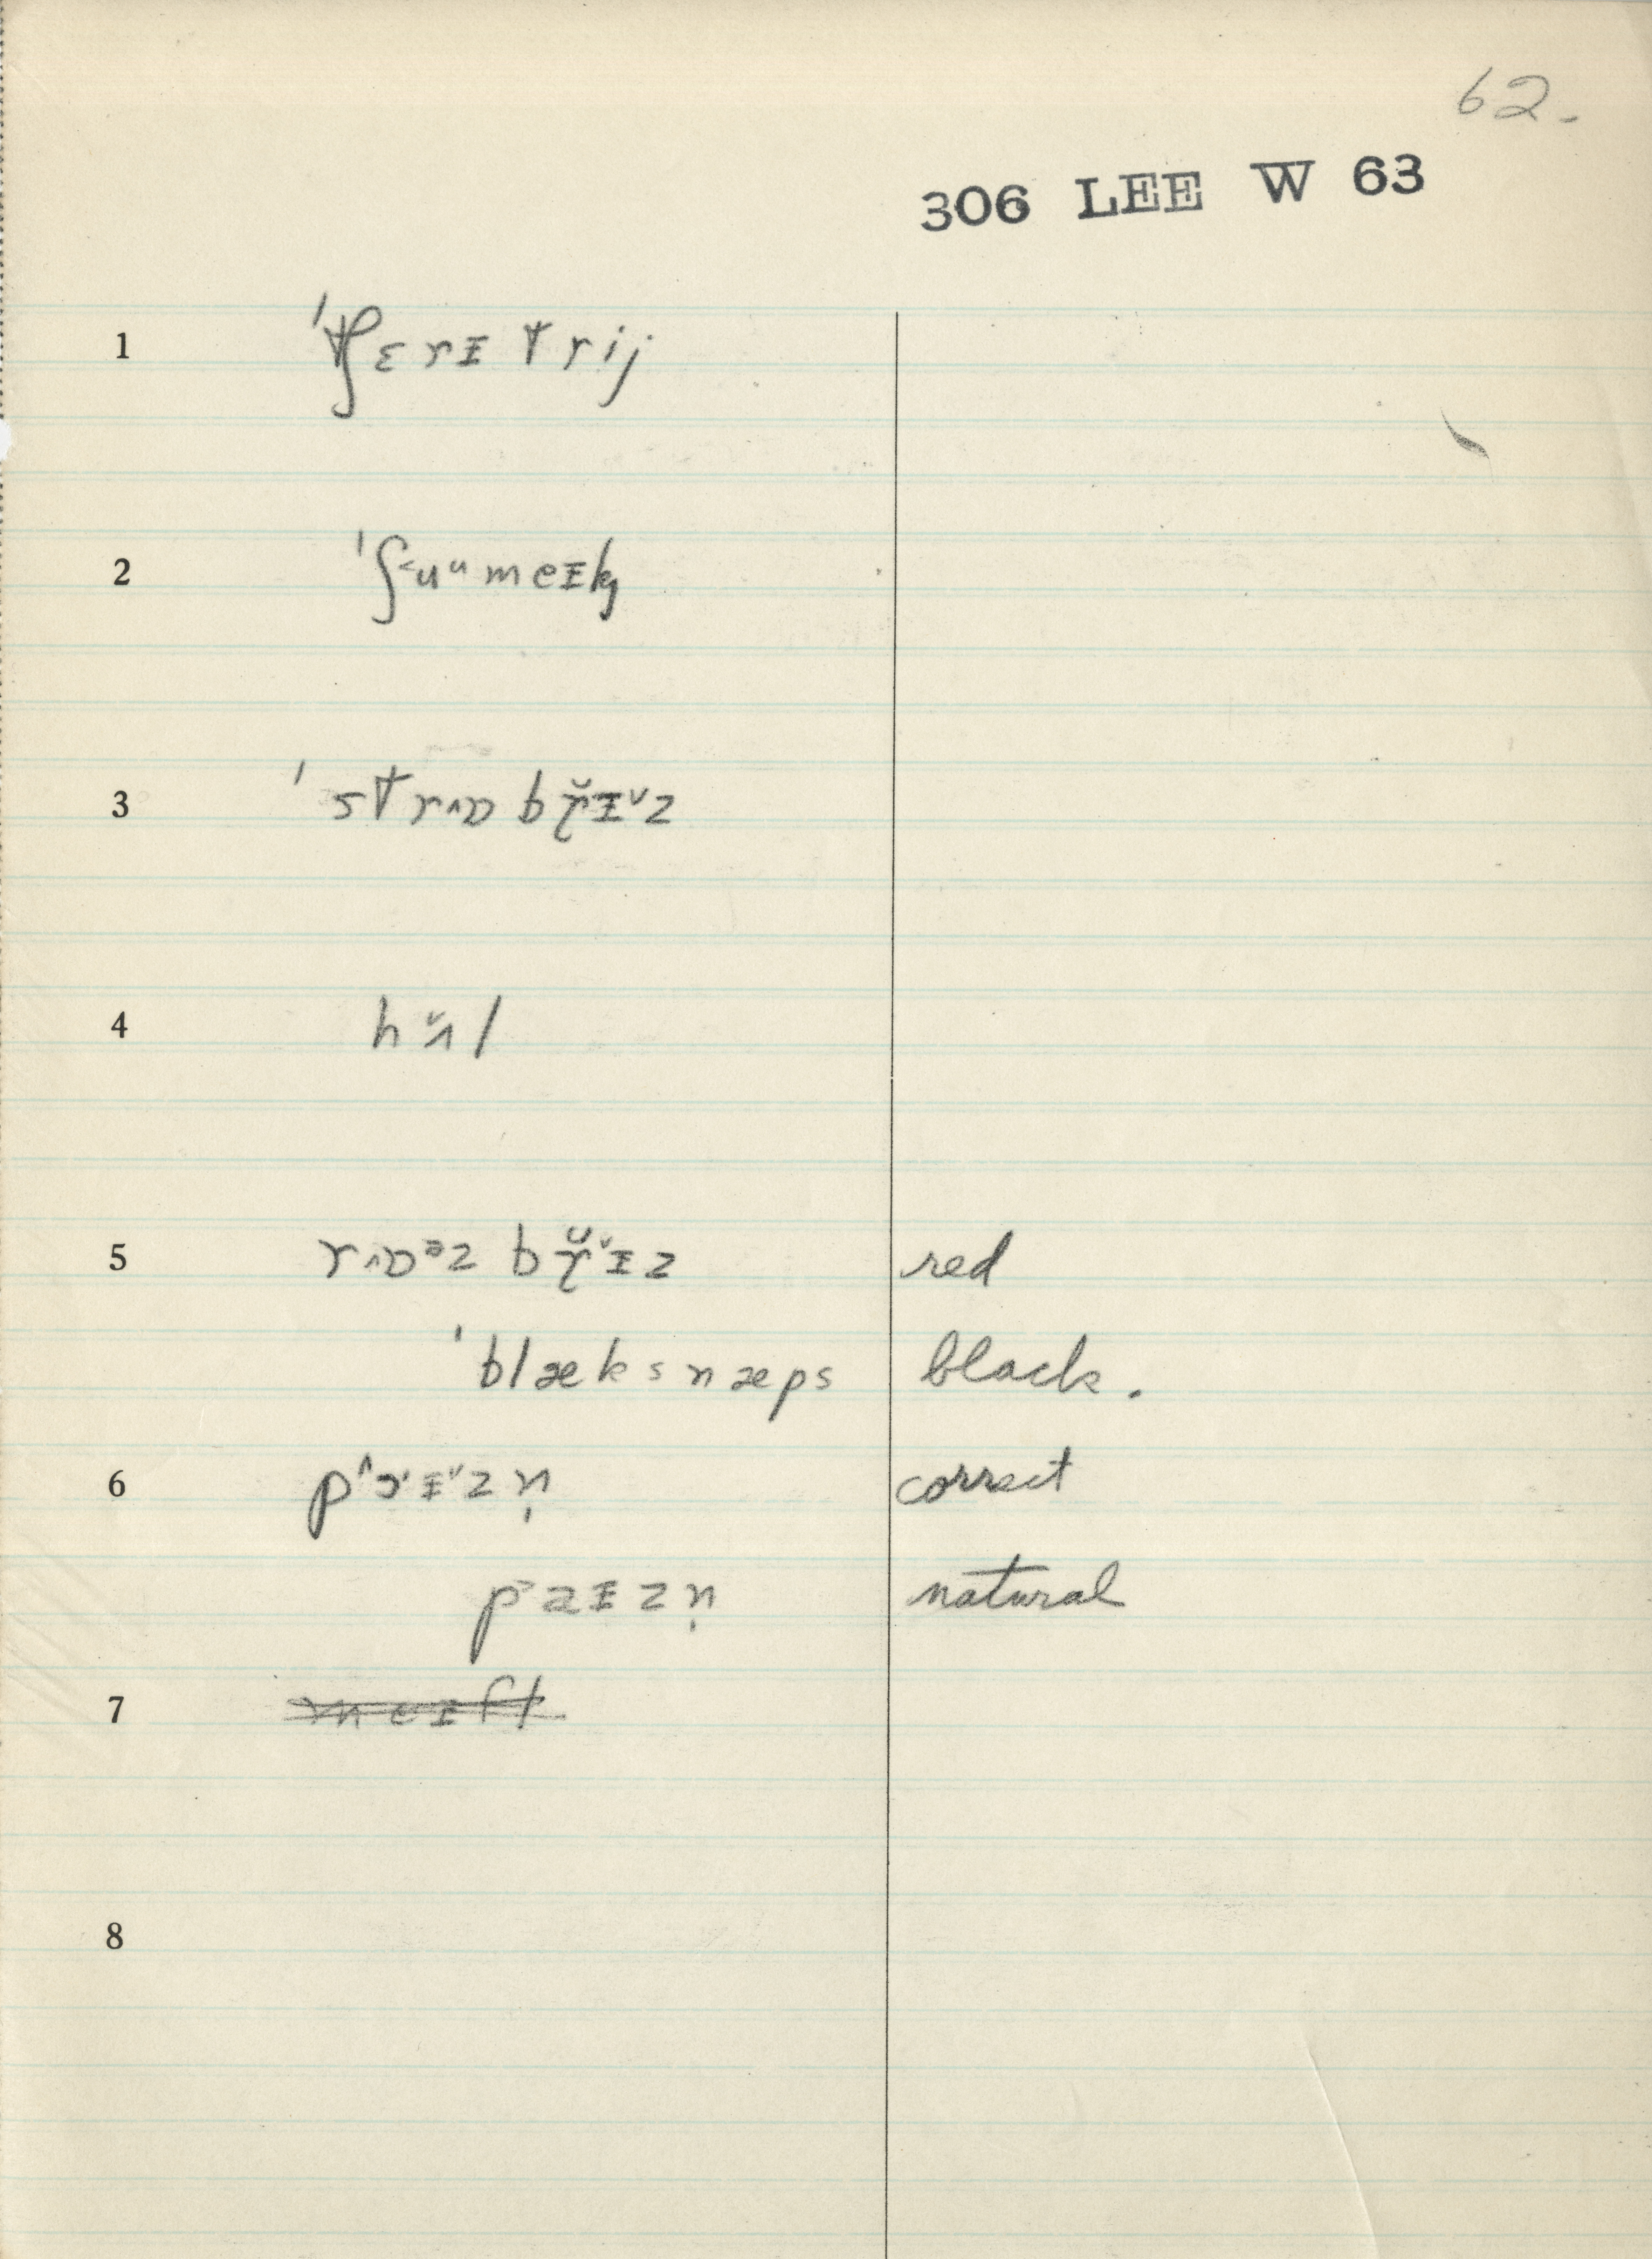 62.
306 LEE W 63
1 ˈtʃɛrɪtrij
2 ˈʃ˂uᵘmeɪk
3 ˈstrɒ˄bɚ̆ɪ˅z
4 hʌ̆l
5 rɒ˄ᵊzbɚ̆˅ɪz red
ˈblæksnæps black.
6 pɪ˅zn̩ correct
paɪzn̩ natural
7
8